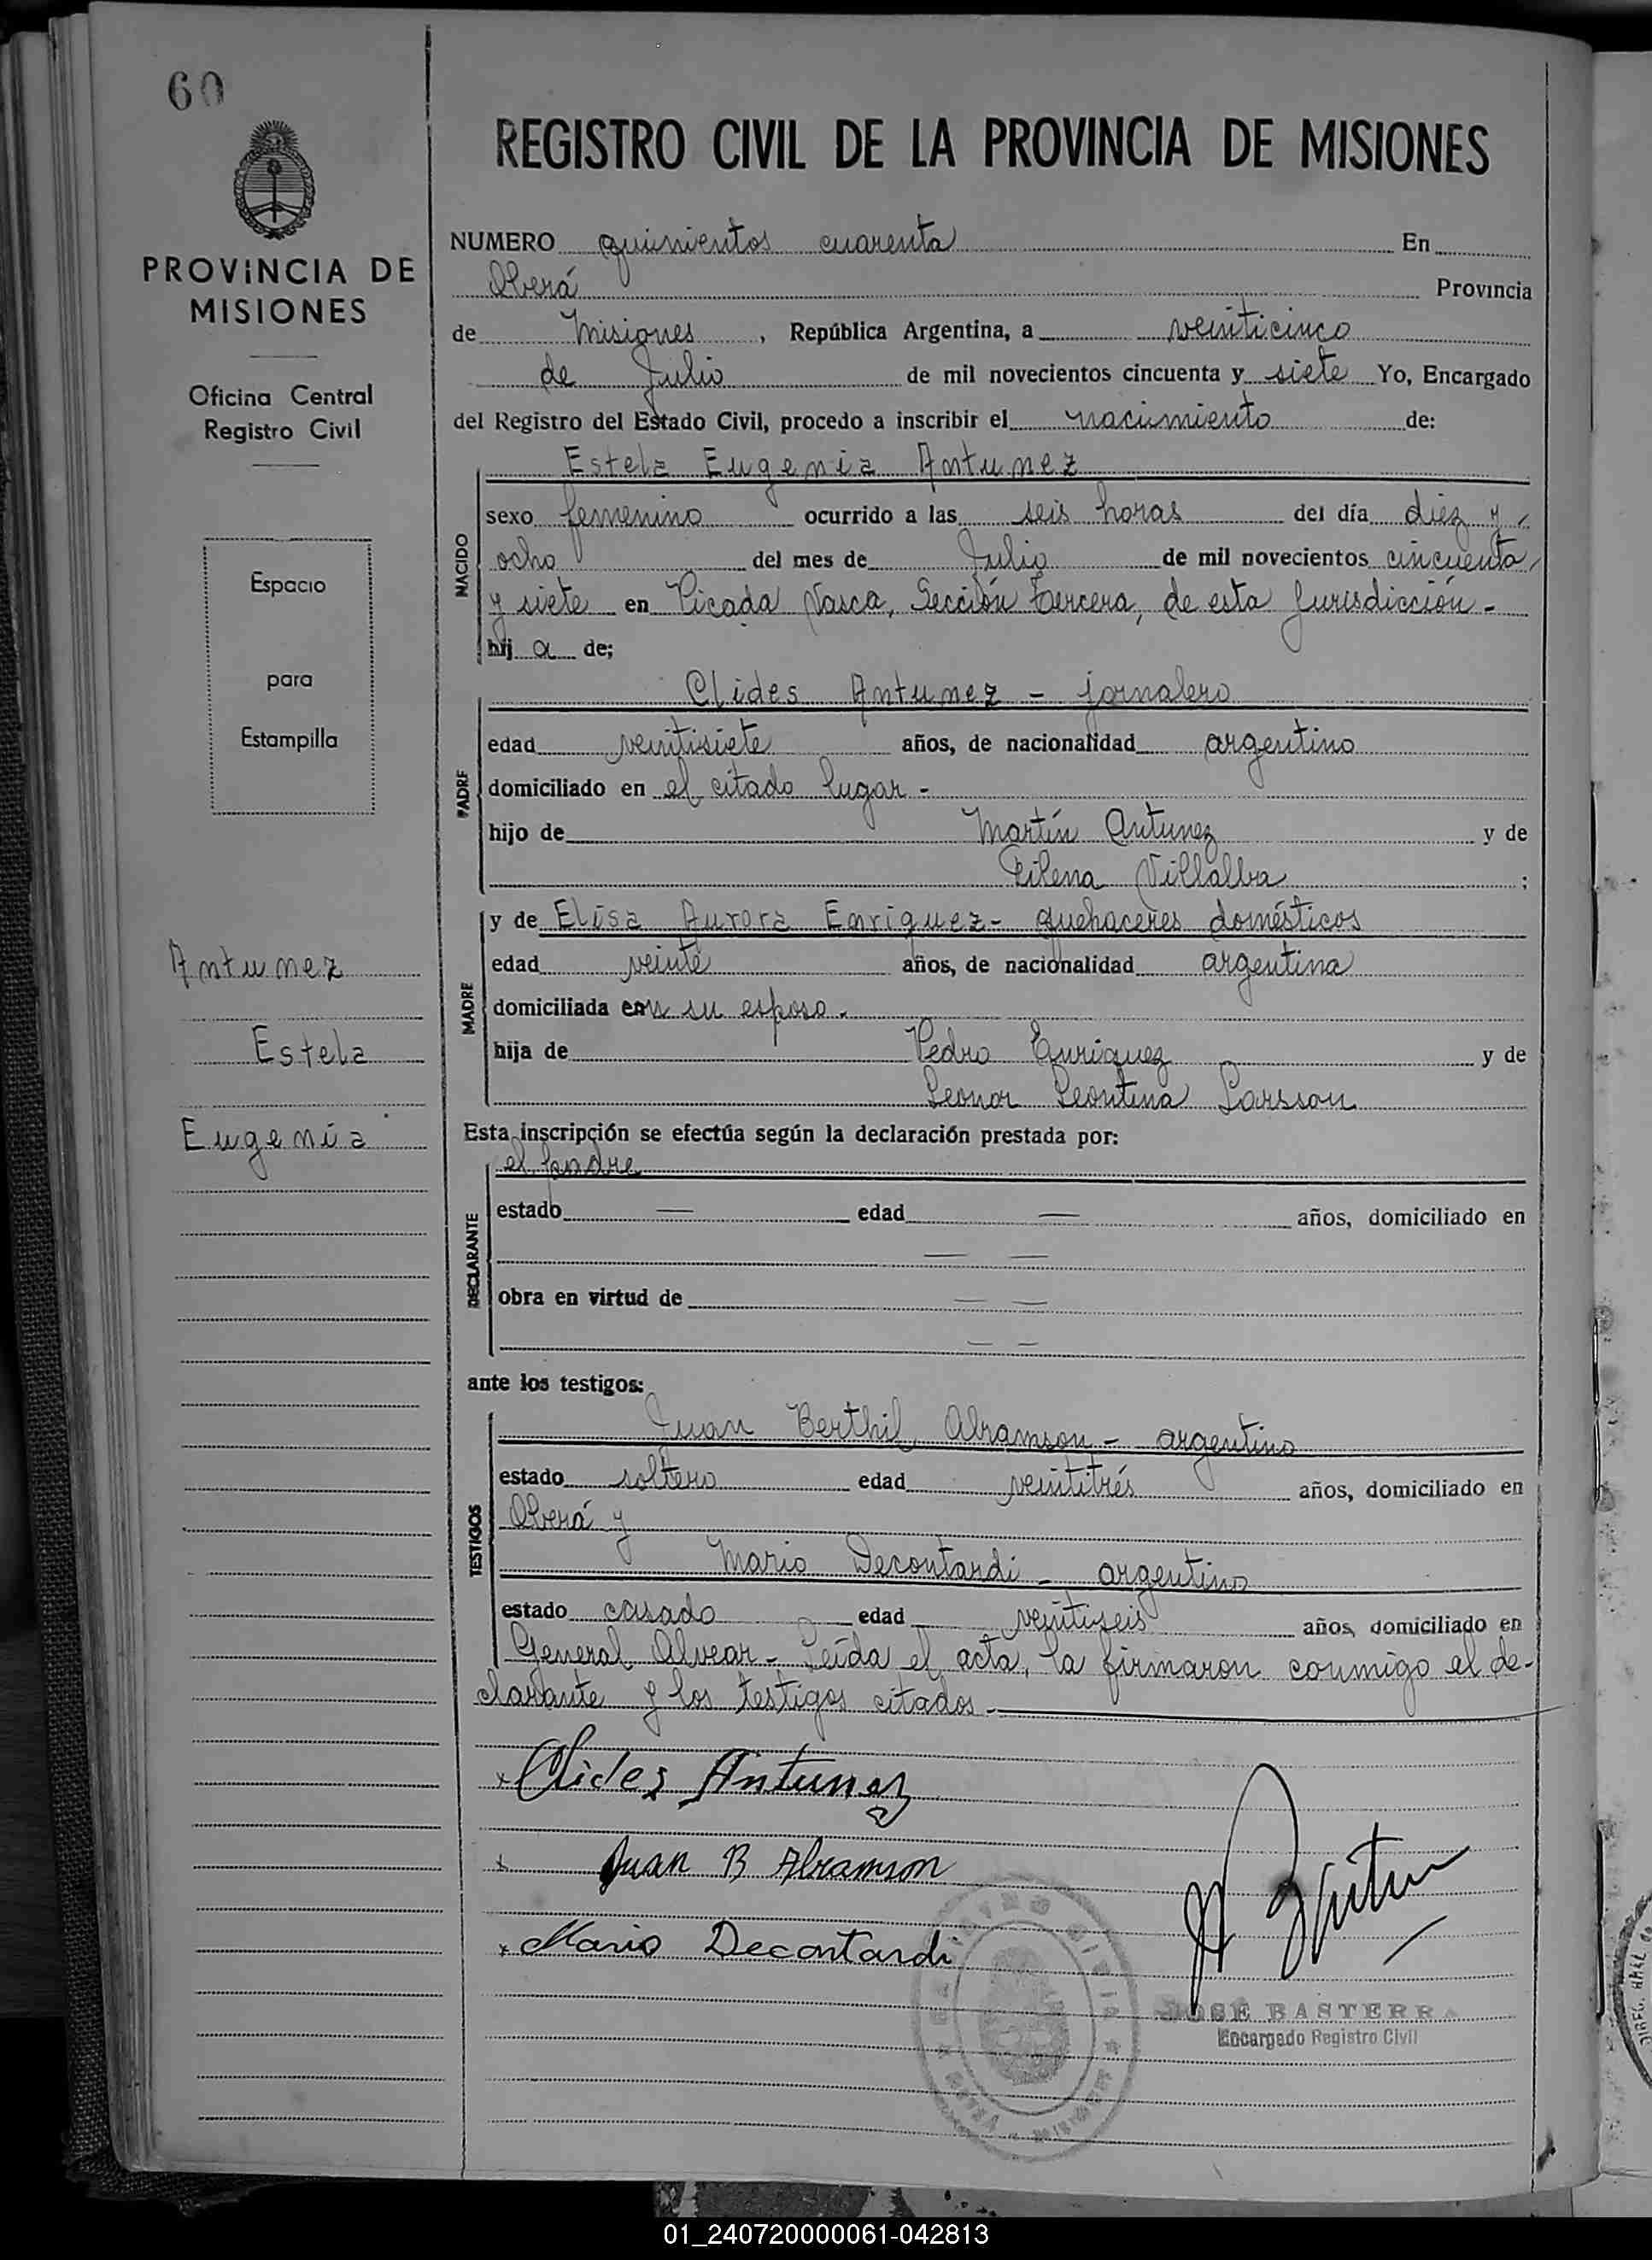 60
PROVINCIA DE
MISIONES
Oficina Central
Registro Civil
Espacio
para
Estampilla
Antunez
Estela
Eugenia
REGISTRO CIVIL DE LA PROVINCIA DE MISIONES
NUMERO quinientos cuarenta En
Oberá Provincia
de Misiones, República Argentina, a veinticinco
de Julio de mil novecientos cincuenta y siete Yo, Encargado
del Registro del Estado Civil, procedo a inscribir el nacimiento de:
Estela Eugenia Antunez
NACIDO
sexo femenino ocurrido a las seis horas del día diez y
ocho del mes de Julio de mil novecientos cincuenta
y siete en Picada Vasca, Sección tercera, de esta Jurisdicción -
hij a de;
Clides Antunez - jornalero
PADRE
edad veintisiete años, de nacionalidad argentino
domiciliado en el citado lugar -
hijo de Martín Antunez y de
Villalba ;
y de Elisa Aurora Enriquez - quehaceres domésticos
MADRE
edad veinte años, de nacionalidad argentina
domiciliada con su esposo.
hija de Pedro Enriquez y de
Leonor Leontina Larsson
Esta inscripción se efectúa según la declaración prestada por:
el padre
DECLARANTE
estado — edad — años, domiciliado en
— —
obra en virtud de — —
— —
ante los testigos:
Juan Berthil Abramson - argentino
TESTIGOS
estado soltero edad veintitrés años, domiciliado en
Oberá y
Mario Decontardi - argentino
estado casado edad veintiseis años, domiciliado en
General Alvear - Leída el acta, la firmaron conmigo el de-
clarante y los testigos citados -
x Clides Antunez
x Juan B Abramson
x Mario Decontardi
JOSE BASTERRA
Encargado Registro Civil
REGISTRO CIVIL
01_240720000061-042813